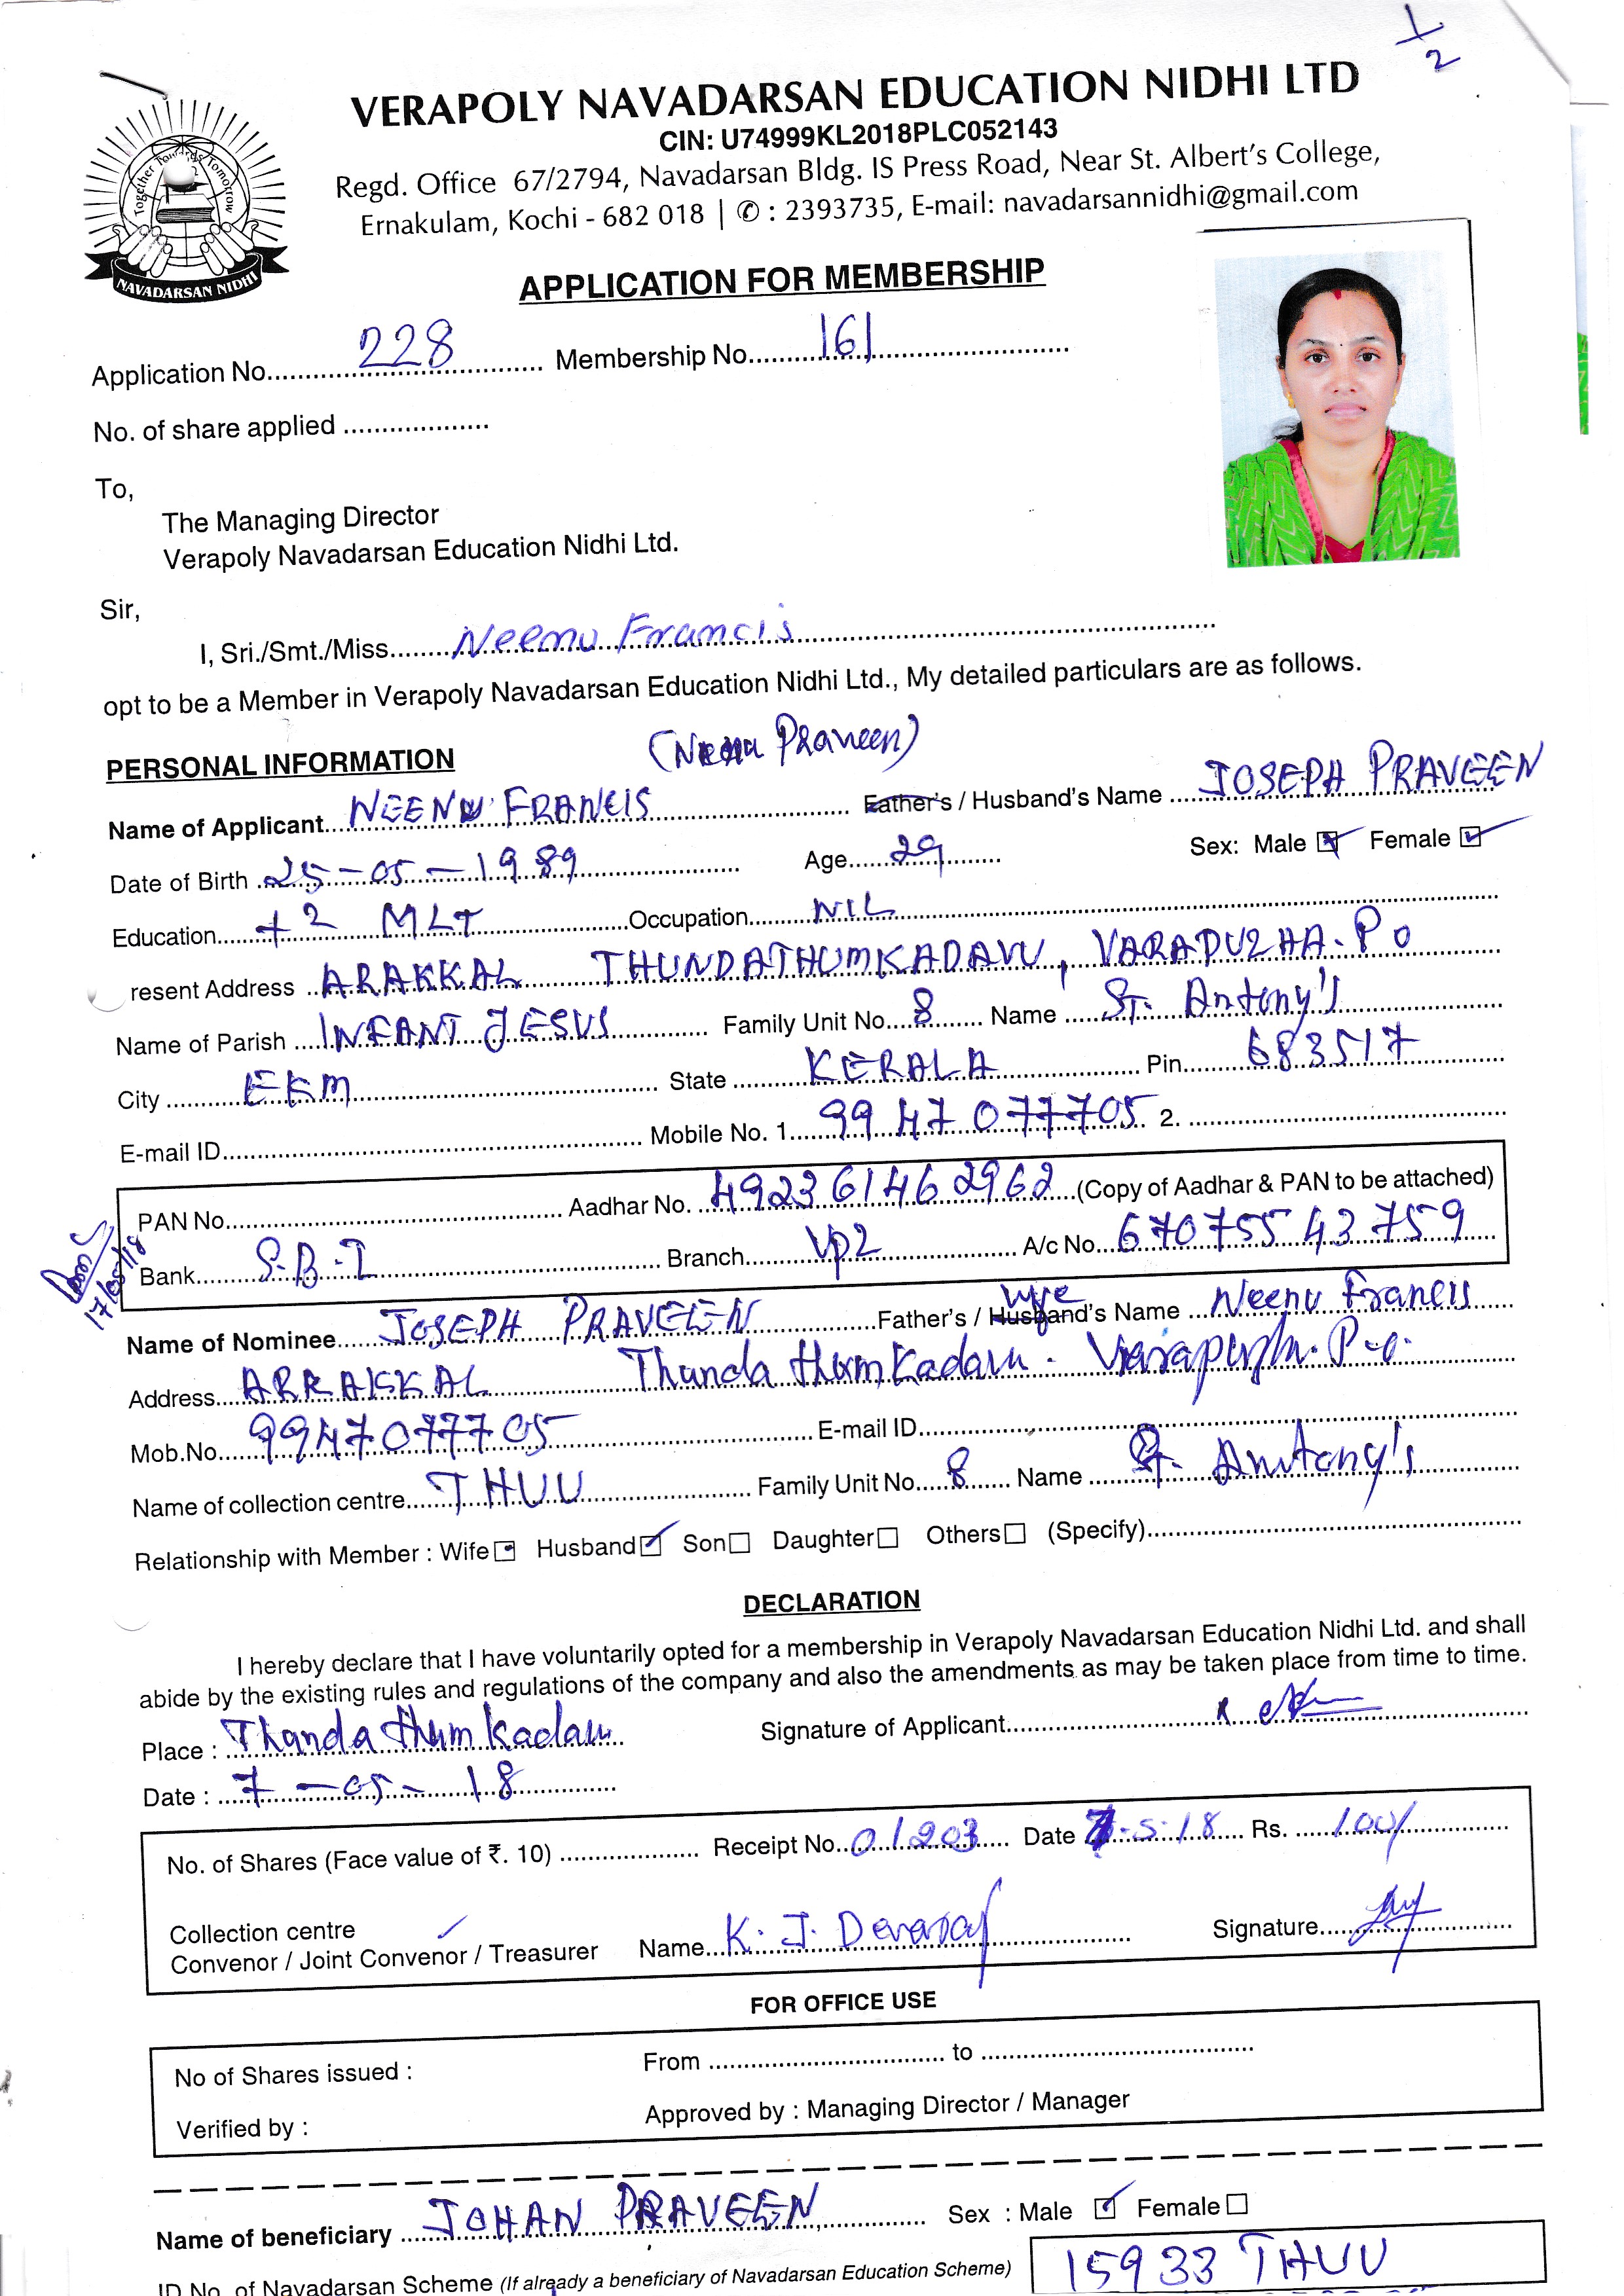 1/2
VERAPOLY NAVADARSAN EDUCATION NIDHI LTD
CIN: U74999KL2018PLC052143
Regd. Office 67/2794, Navadarsan Bldg. IS Press Road, Near St. Albert's College,
Ernakulam, Kochi - 682 018 | ✆ : 2393735, E-mail: navadarsannidhi@gmail.com
Together Towards Tomorrow
NAVADARSAN NIDHI
APPLICATION FOR MEMBERSHIP
Application No. 228 Membership No. 161
No. of share applied
To,
The Managing Director
Verapoly Navadarsan Education Nidhi Ltd.
Sir,
I, Sri./Smt./Miss. Neenu Francis
opt to be a Member in Verapoly Navadarsan Education Nidhi Ltd., My detailed particulars are as follows.
PERSONAL INFORMATION (Neenu Praveen)
Name of Applicant. NEENU FRANCIS Father's / Husband's Name JOSEPH PRAVEEN
Date of Birth 25-05-1989 Age 29 Sex: Male Female
Education +2 MLT Occupation NIL
resent Address ARAKKAL THUNDATHUMKADAVU, VARAPUZHA. P o
Name of Parish INFANT JESUS Family Unit No. 8 Name St. Antony's
City EKM State KERALA Pin 683517
E-mail ID Mobile No. 1. 9947077705 2.
PAN No. Aadhar No. 492361462962 (Copy of Aadhar & PAN to be attached)
Bank S.B.I Branch VPZ A/c No. 67075543759
17/05/18
Name of Nominee JOSEPH PRAVEEN Father's / Husband's Name wife Neenu Francis
Address ARRAKKAL Thundathumkadavu. Varapuzha. P.o.
Mob.No. 9947077705 E-mail ID
Name of collection centre THUU Family Unit No. 8 Name St. Antony's
Relationship with Member : Wife Husband Son Daughter Others (Specify)
DECLARATION
I hereby declare that I have voluntarily opted for a membership in Verapoly Navadarsan Education Nidhi Ltd. and shall
abide by the existing rules and regulations of the company and also the amendments as may be taken place from time to time.
Place : Thundathumkadavu Signature of Applicant
Date : 7-05-18
No. of Shares (Face value of ₹. 10) Receipt No. 01203 Date 7.5.18 Rs. 100/
Collection centre
Convenor / Joint Convenor / Treasurer Name K. J. Devaraj Signature
FOR OFFICE USE
No of Shares issued : From to
Verified by : Approved by : Managing Director / Manager
Name of beneficiary JOHAN PRAVEEN Sex : Male Female
ID No. of Navadarsan Scheme (If already a beneficiary of Navadarsan Education Scheme) 15933 THUU